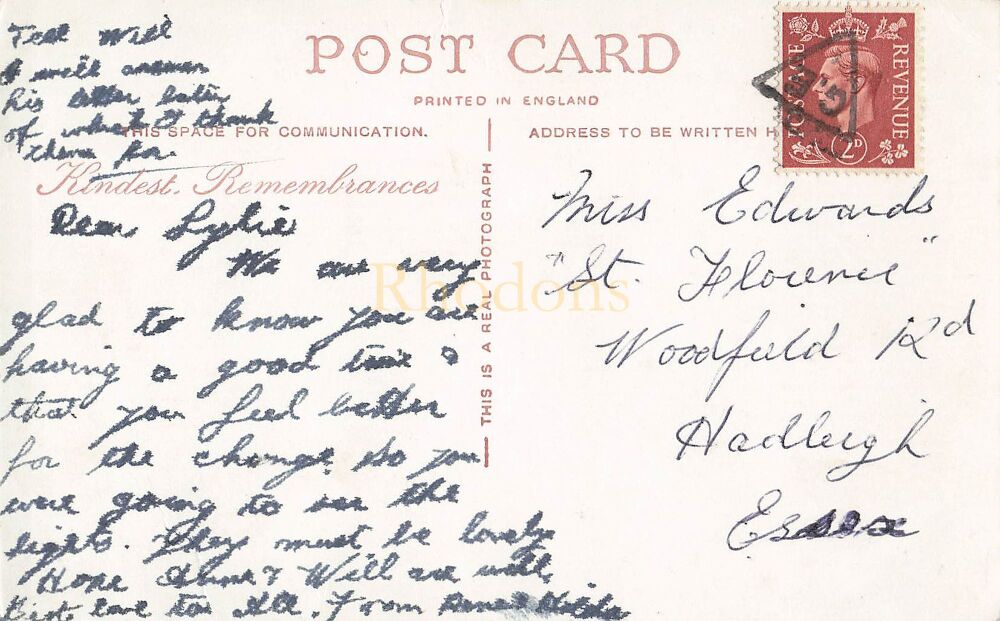 Tell Will
I will answer
his letter later
of which I thank
them for.
POST CARD
PRINTED IN ENGLAND
THIS SPACE FOR COMMUNICATION.
ADDRESS TO BE WRITTEN H
Kindest Remembrances
THIS IS A REAL PHOTOGRAPH
POSTAGE
REVENUE
2D
G.B
Dear Sylvie
We are very
glad to know you are
having a good time &
that you feel better
for the change. So you
were going to see the
lights. They must be lovely
Hope & Will are well,
Best love to All. From
Miss Edwards
"St. Florence"
Woodfield Rd
Hadleigh
Essex
Rhodons